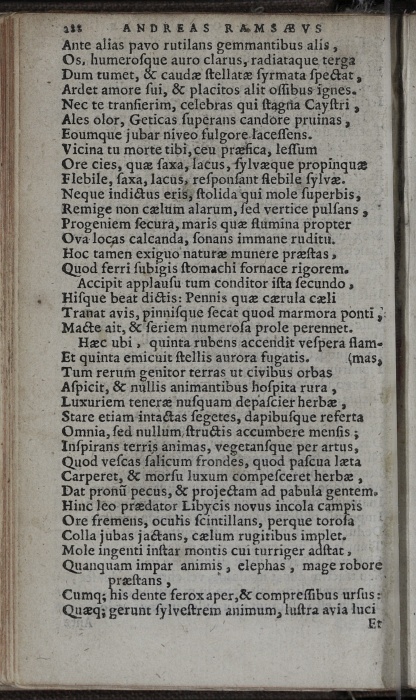 288 ANDREAS RAMSÆVS
Ante alias pavo rutilans gemmantibus alis,
Os, humeroſque auro clarus, radiataque terga
Dum tumet, & caudæ ſtellatæ ſyrmata ſpectat,
Ardet amore ſui, & placitos alit oſſibus ignes.
Nec te tranſierim, celebras qui ſtagna Cayſtri,
Ales olor, Geticas ſuperans candore pruinas,
Eoumque jubar niveo fulgore laceſſens.
Vicina tu morte tibi, ceu præfica, leſſum
Ore cies, quæ ſaxa, lacus, ſylvæque propinquæ
Flebile, ſaxa, lacus, reſponſant flebile ſylvæ.
Neque indictus eris, ſtolida qui mole ſuperbis,
Remige non cælum alarum, ſed vertice pulſans,
Progeniem ſecura, maris quæ flumina propter
Ova locas calcanda, ſonans immane ruditu.
Hoc tamen exiguo naturæ munere præſtas,
Quod ferri ſubigis ſtomachi fornace rigorem.
Accipit applauſu tum conditor iſta ſecundo,
Hiſque beat dictis: Pennis quæ cærula cæli
Tranat avis, pinniſque ſecat quod marmora ponti,
Macte ait, & ſeriem numeroſa prole perennet.
Hæc ubi, quinta rubens accendit veſpera flam-
Et quinta emicuit ſtellis aurora fugatis. (mas,
Tum rerum genitor terras ut civibus orbas
Aſpicit, & nullis animantibus hoſpita rura,
Luxuriem teneræ nuſquam depaſcier herbæ,
Stare etiam intactas ſegetes, dapibuſque referta
Omnia, ſed nullum ſtructis accumbere menſis;
Inſpirans terris animas, vegetanſque per artus,
Quod veſcas ſalicum frondes, quod paſcua læta
Carperet, & morſu luxum compeſceret herbæ,
Dat pronū pecus, & projectam ad pabula gentem.
Hinc leo prædator Libycis novus incola campis
Ore fremens, oculis ſcintillans, perque toroſa
Colla jubas jactans, cælum rugitibus implet.
Mole ingenti inſtar montis cui turriger adſtat,
Quanquam impar animis, elephas, mage robore
præſtans,
Cumq; his dente ferox aper, & compreſſibus urſus:
Quæq; gerunt ſylveſtrem animum, luſtra avia luci
Et